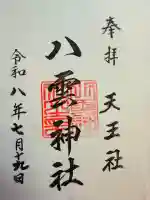 奉拝 天王社
八雲神社
令和八年七月十九日